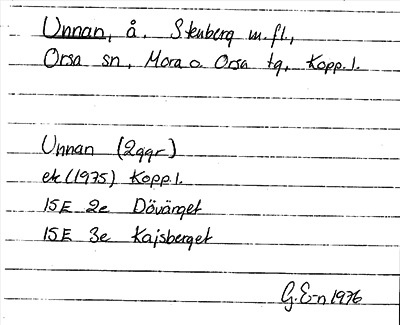 Unnan, å. Stenberg m.fl.,
Orsa sn, Mora o. Orsa tg, Kopp.l.
Unnan (2ggr)
ek (1975) Kopp.l.
15E 2e Dövärget
15E 3e Kajsberget
G.E-n 1976